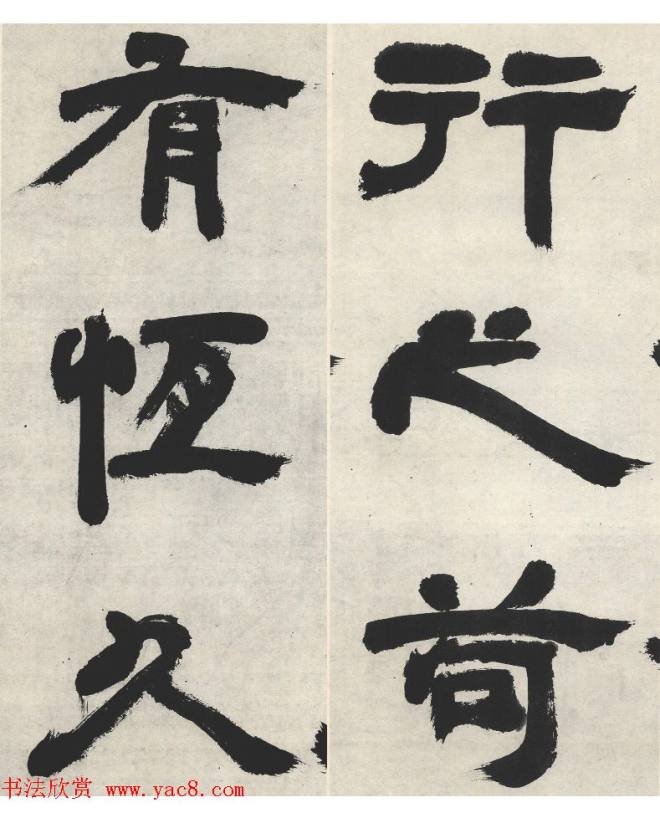 行之苟
有恆久
书法欣赏 www.yac8.com